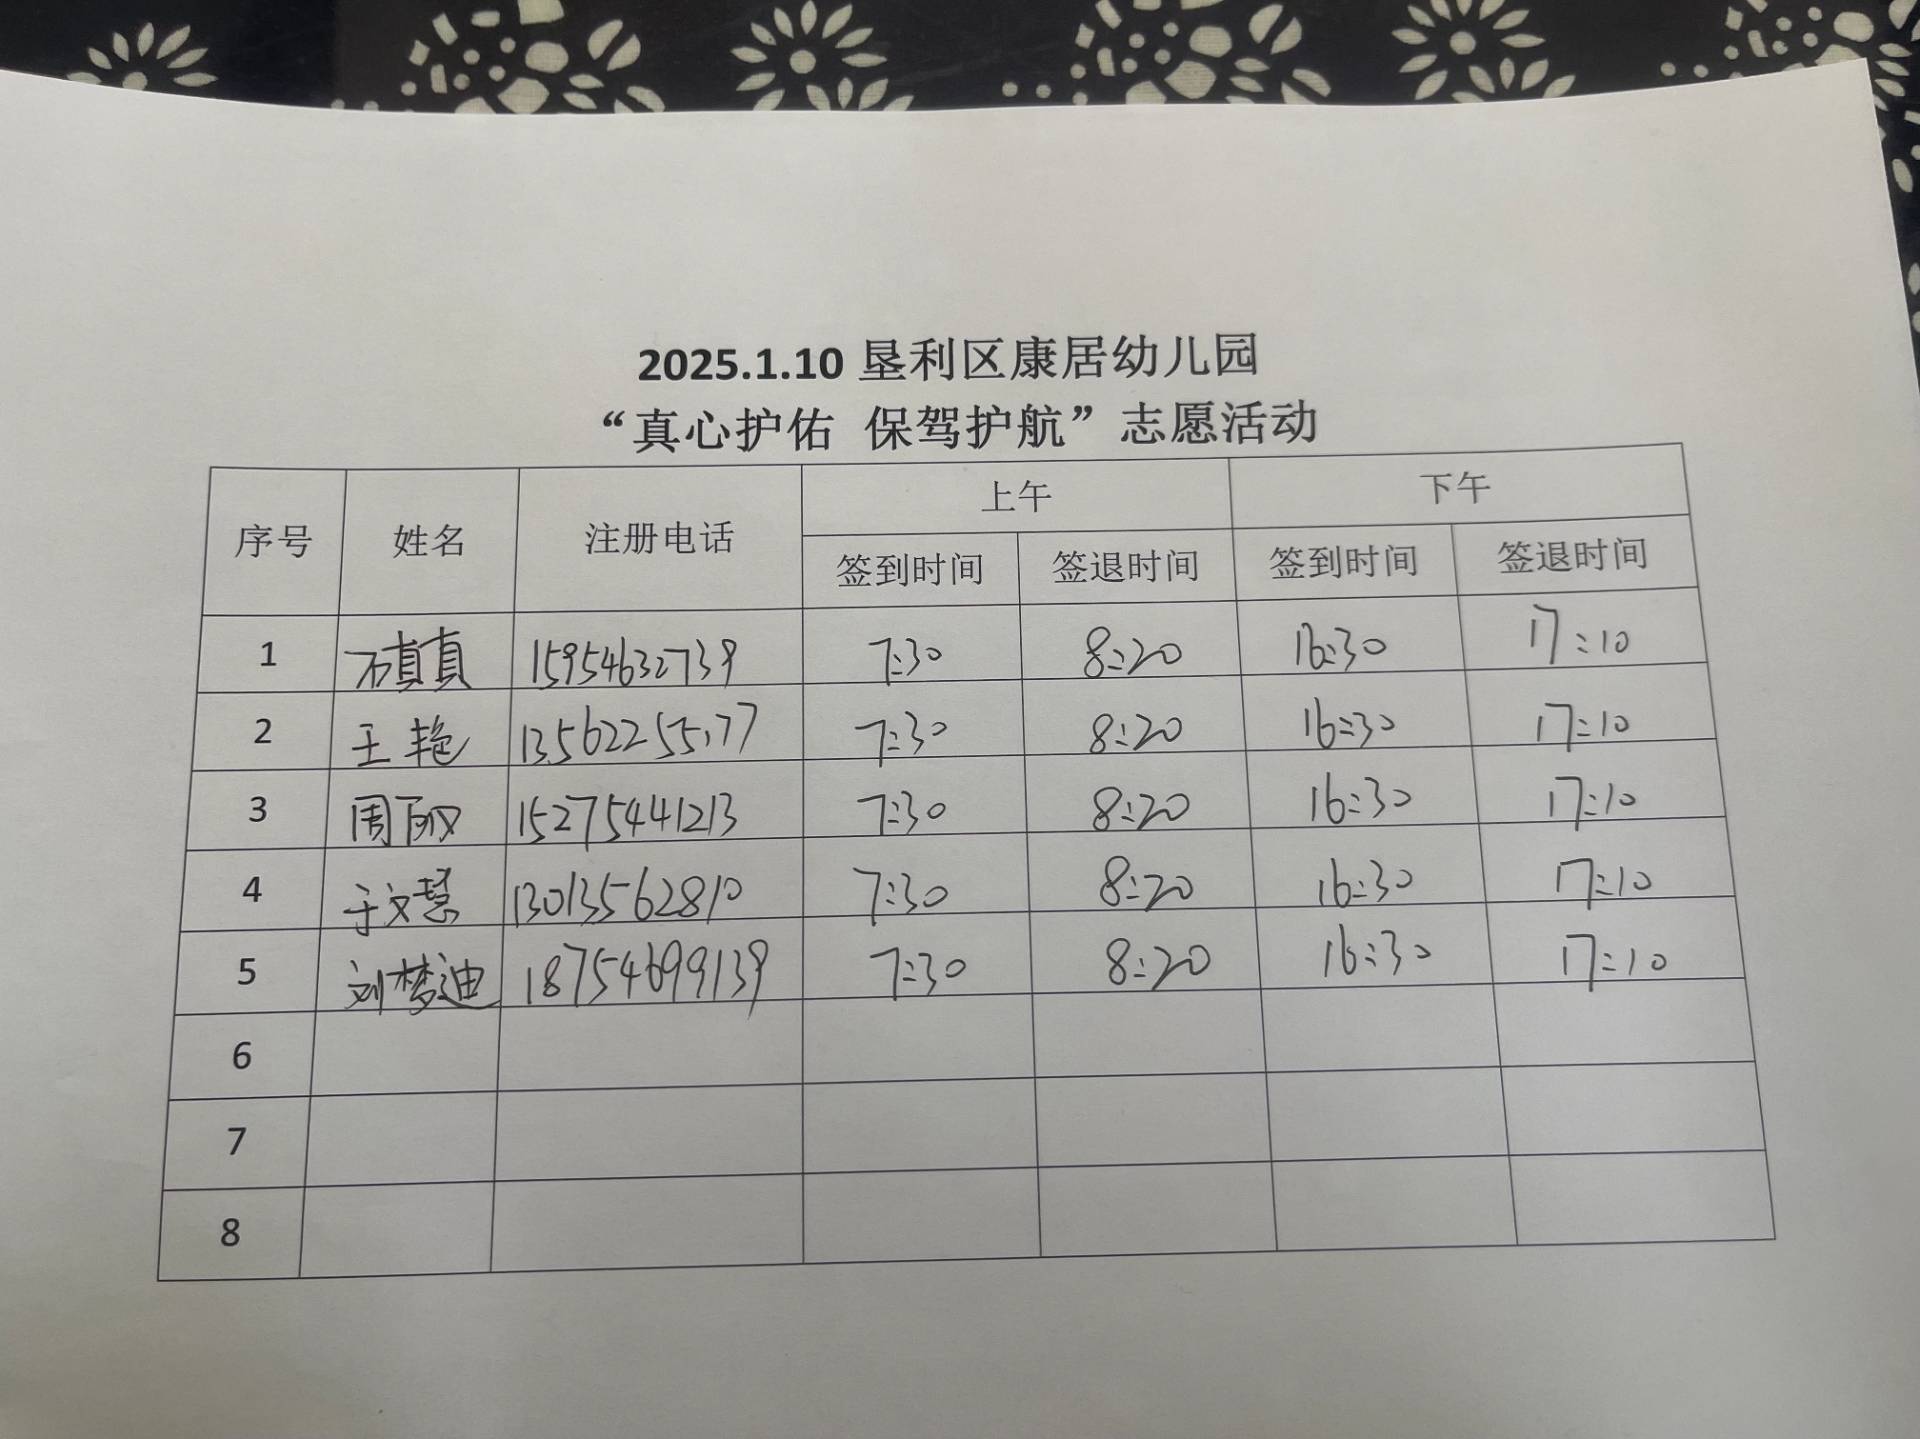 2025.1.10 垦利区康居幼儿园
“真心护佑 保驾护航”志愿活动
序号 姓名 注册电话 上午 下午
签到时间 签退时间 签到时间 签退时间
1 石真真 15954632739 7:30 8:20 16:30 17:10
2 王艳 13562255177 7:30 8:20 16:30 17:10
3 周 15275441213 7:30 8:20 16:30 17:10
4 于文慧 13013562810 7:30 8:20 16:30 17:10
5 刘梦迪 18754699139 7:30 8:20 16:30 17:10
6
7
8